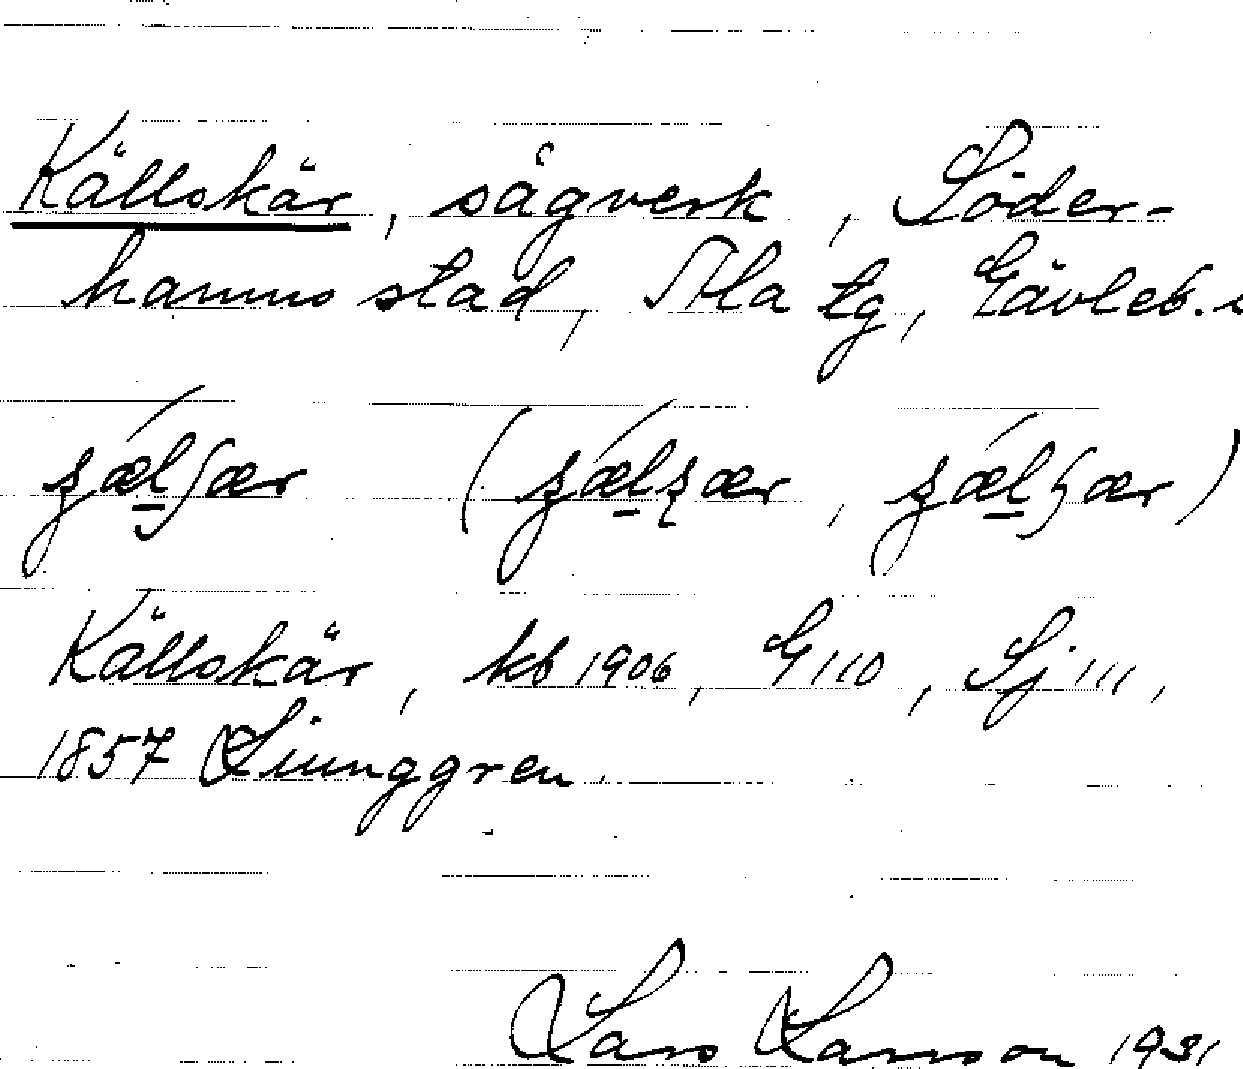 Källskär, sågverk, Söder-
hamns stad, Ala tg, Gävleb. l
Källskär, kb 1906, G110, Sj 111,
1857 Ljunggren
Lars Larsson 1931